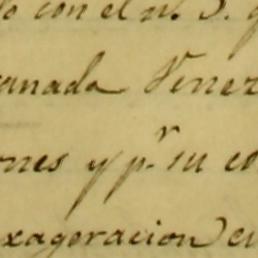 lo con el n.º 3. 
anada Venez
ones y p.r su co
xageracion en